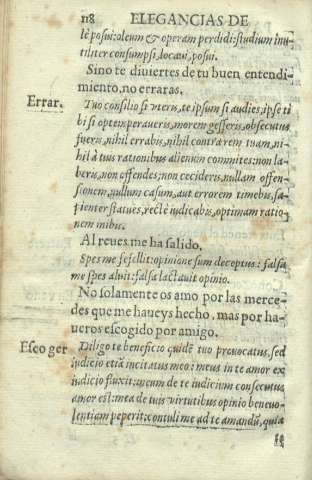 118 ELEGANCIAS DE
lè posui: oleum & operam perdidi: studium inu-
tiliter consumpsi, locaui, posui.
Sino te diuiertes de tu buen entendi-
miento, no erraras.
Errar.
Tuo consilio si vteris, te ipsum si audies, ipse ti
bi si optemperaueris, morem gesseris, obsecutus
fueris, nihil errabis, nihil contra rem tuam, ni-
hil à tuis rationibus alienum commites: non la-
beris, non offendes; non cecideris, nullam offen-
sionem, nullum casum, aut errorem timebis, sa-
pienter statues, rectè iudicabis, optimam ratio-
nem inibis.
Al reues me ha salido,
Spes me fefellit: opinione sum deceptus: falsa
me spes aluit: falsa lactauit opinio.
No solamente os amo por las merce-
des que me haueys hecho, mas por ha-
ueros escogido por amigo.
Escoger
Diligo te beneficio quidē tuo prouocatus, sed
iudicio etiā incitatus meo: meus in te amor ex
iudicio fluxit: meum de te iudicium consecutus
amor est: mea de tuis virtutibus opinio beneuo-
lentiam peperit: contuli me ad te amandū, quia